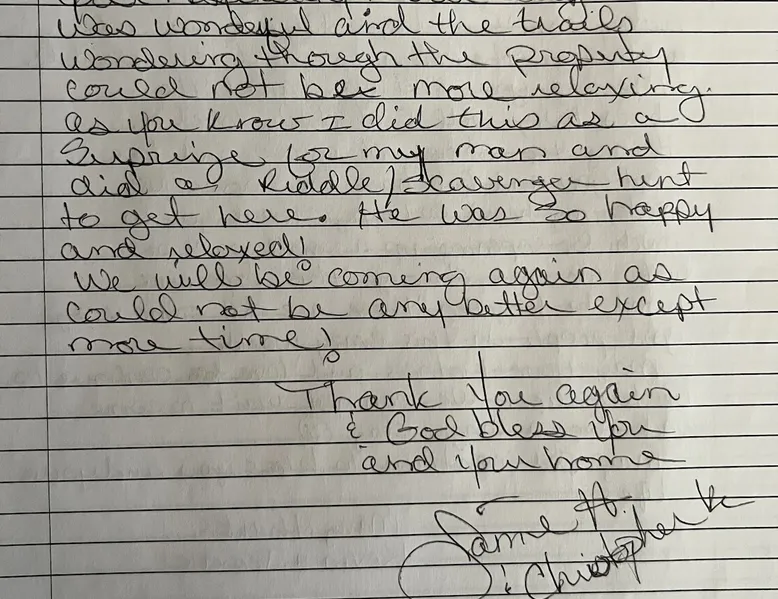 was wonderful and the trails
wondering though the property
could not be more relaxing.
as you know I did this as a
Suprize for my man and
did a Riddle/Scavenger hunt
to get here. He was so happy
and relaxed!
We will be coming again as
could not be any better except
more time!
Thank you again
& God bless you
and you home
Jamie H.
& Christopher K